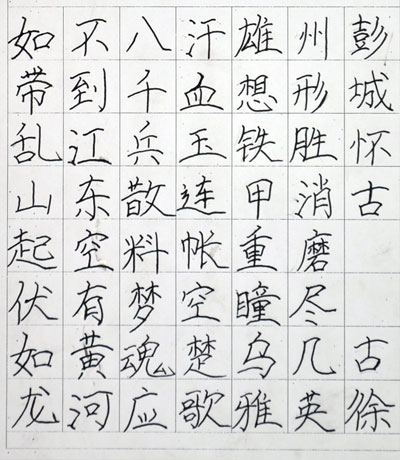 彭城怀古 古徐
州形胜消磨尽几英
雄想铁甲重瞳乌雅
汗血玉连帐空楚歌
八千兵散料梦魂应
不到江东空有黄河
如带乱山起伏如龙